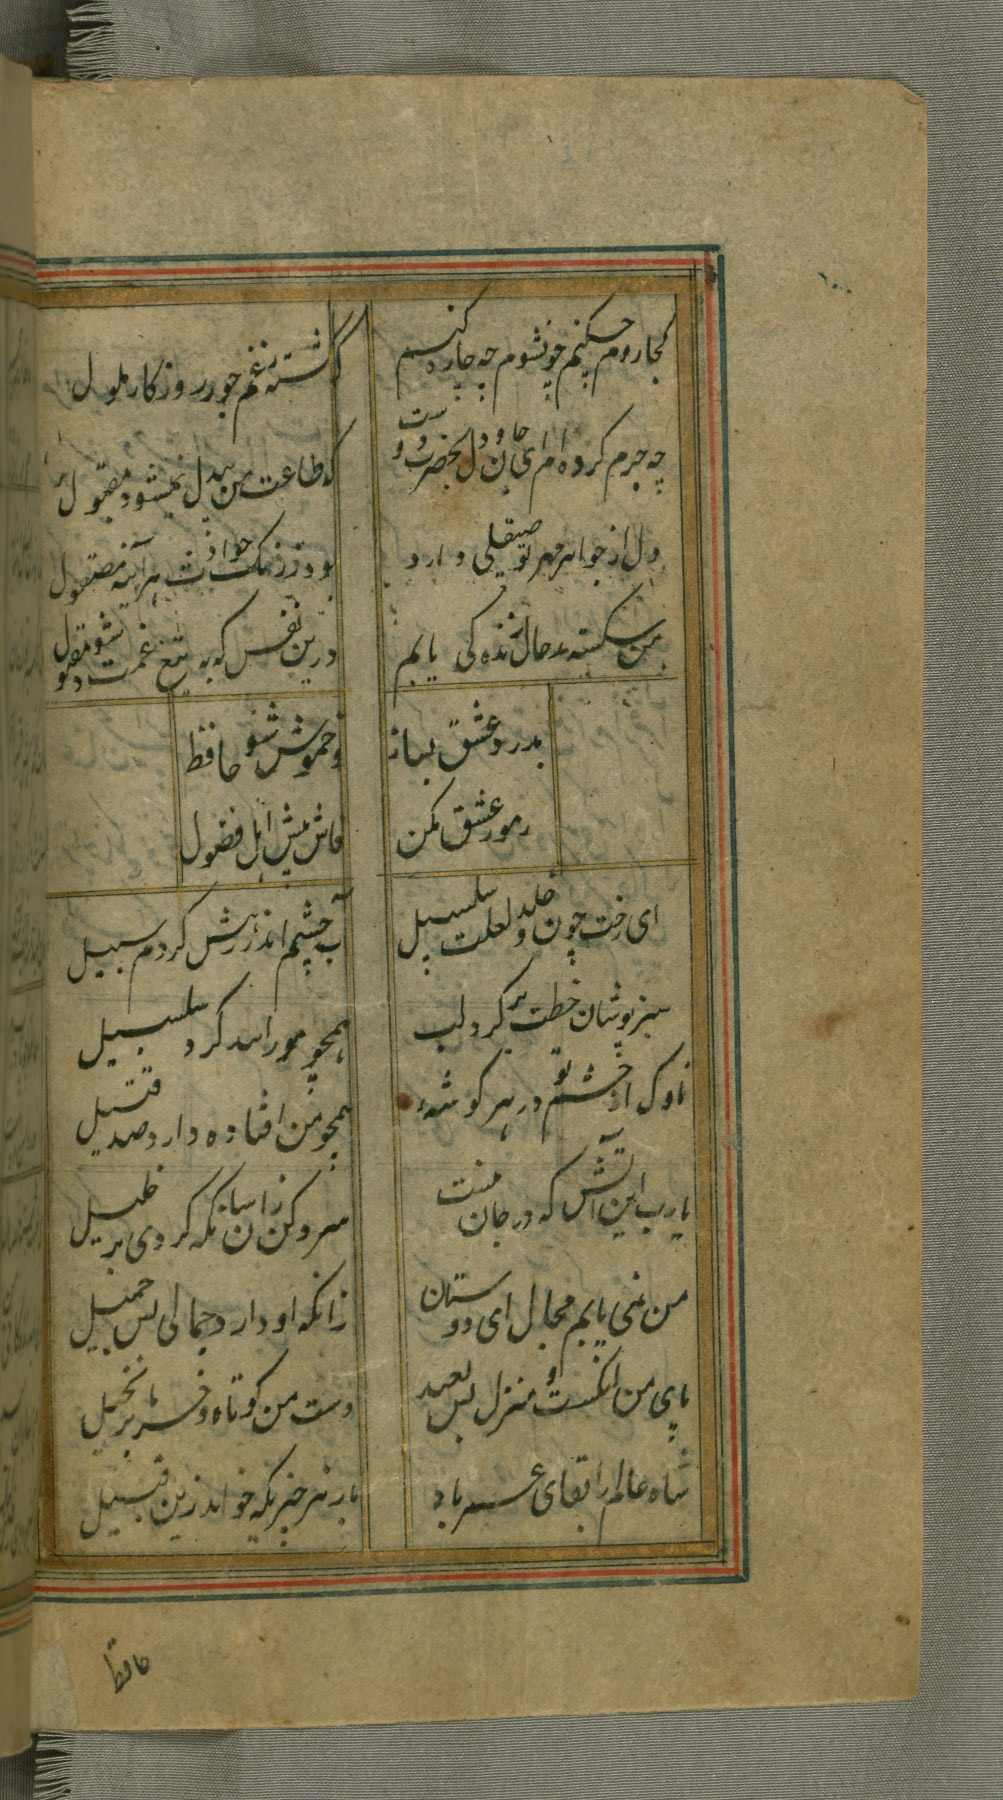 کجا روم چکنم چونشوم چه چاره کنم
گشته زغم جور روزکار ملول
چه جرم کرده ام ای جان و دل بحضرت دوست
که طاعت من بیدل نمیشود مقبول
دل از جواهر مهر تو صیقلی دارد
بود ز زنک حوادث هر آینه مصقول
من شکسته بدحال زنده کی یابم
درین نفس که به تیغ غمت شوم مقتول
بدرد عشق بساز
و خموش شو حافظ
رموز عشق مکن
فاش پیش اهل فضول
ای رخت چون خلد و لعلت سلسبیل
آب چشمم اندر رهش کردم سبیل
سبزپوشان خطت بر کرد لب
همچو مورانند کرد سلسبیل
ناوک چشم تو در هر کوشهٔ
همچو من افتاده دارد صد قتیل
یا رب این آتش که در جان منست
سرد کن زانسان که کردی بر خلیل
من نمی یابم مجال ای دوستان
زانکه او دارد جمالی بس جمیل
پای من لنکست و منزل بس بعید
دست من کوتاه و خرما بر نخیل
شاه عالم را بقای عمر باد
زین قبیل
حافظ